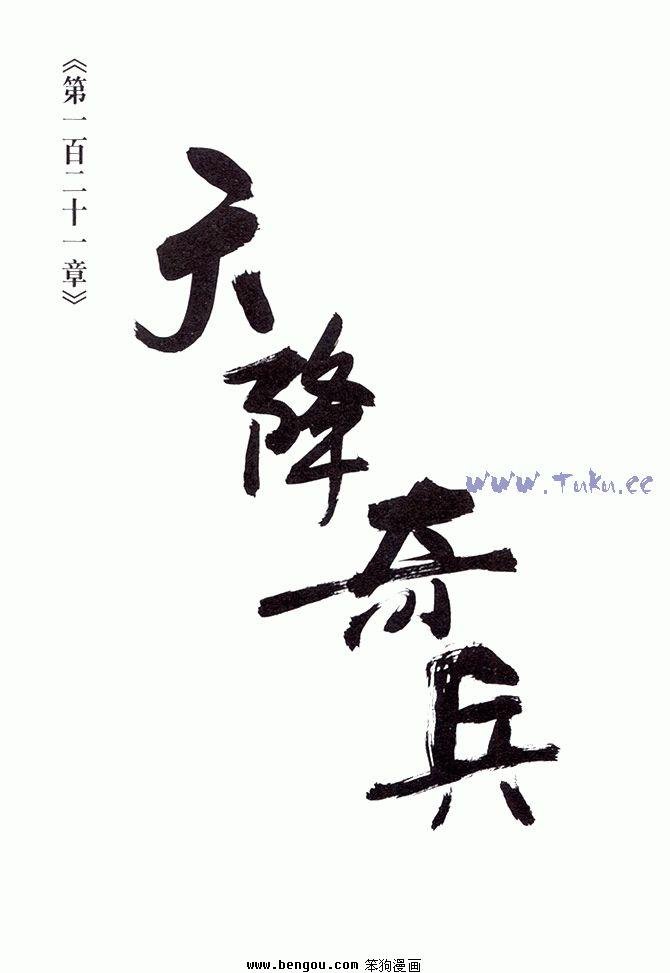 《第一百二十一章》
天降奇兵
www.Tuku.cc
www.bengou.com 笨狗漫画